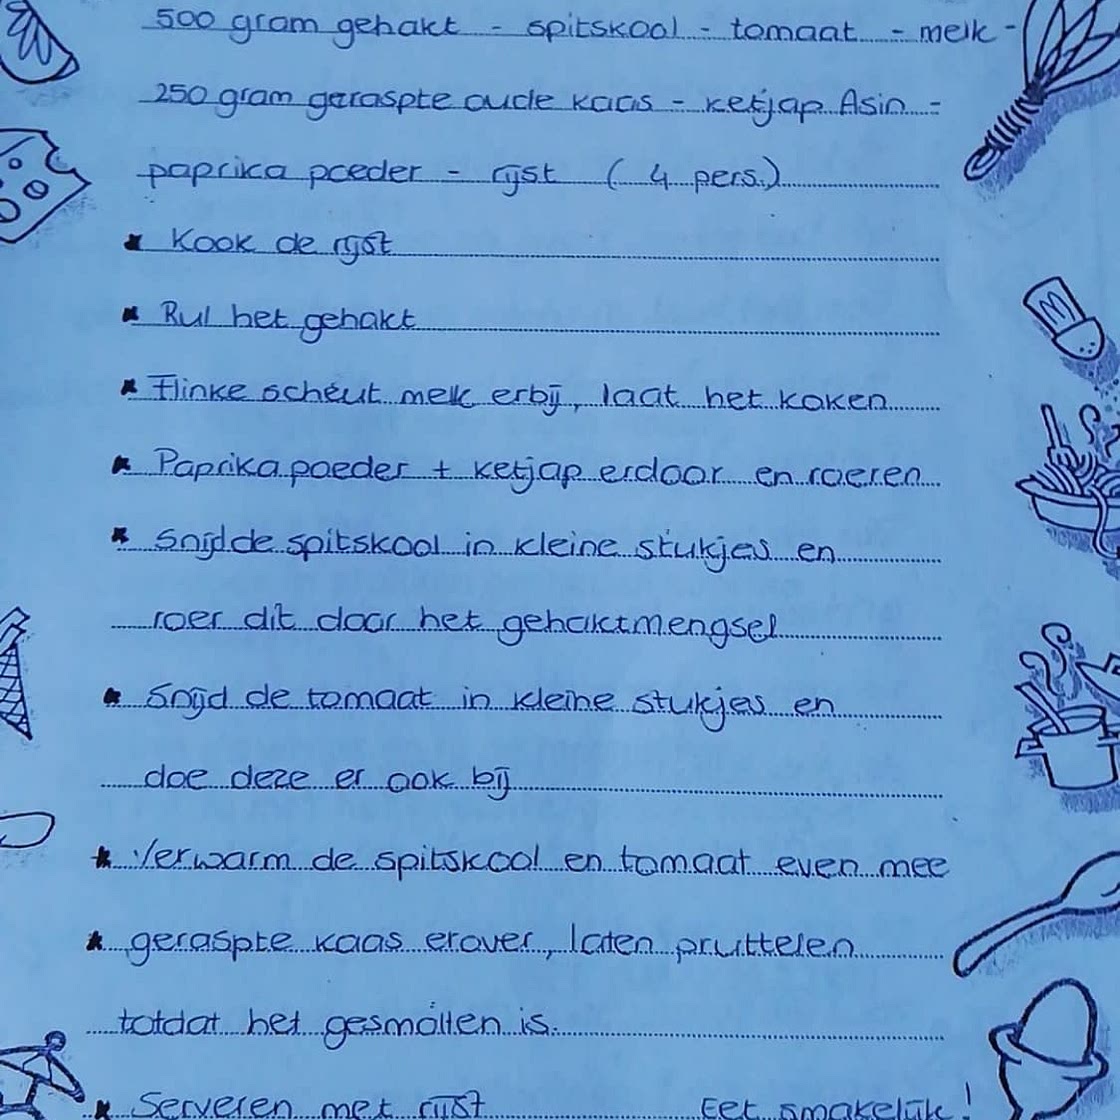 500 gram gehakt - spitskool - tomaat - melk -
250 gram geraspte oude kaas - ketjap Asin -
paprika poeder - rijst ( 4 pers.)
* Kook de rijst
* Rul het gehakt
* Flinke scheut melk erbij, laat het koken
* Paprika poeder + ketjap erdoor en roeren
* Snijd de spitskool in kleine stukjes en
roer dit door het gehaktmengsel
* Snijd de tomaat in kleine stukjes en
doe deze er ook bij
* Verwarm de spitskool en tomaat even mee
* geraspte kaas erover, laten pruttelen
totdat het gesmolten is.
* Serveren met rijst Eet smakelijk!